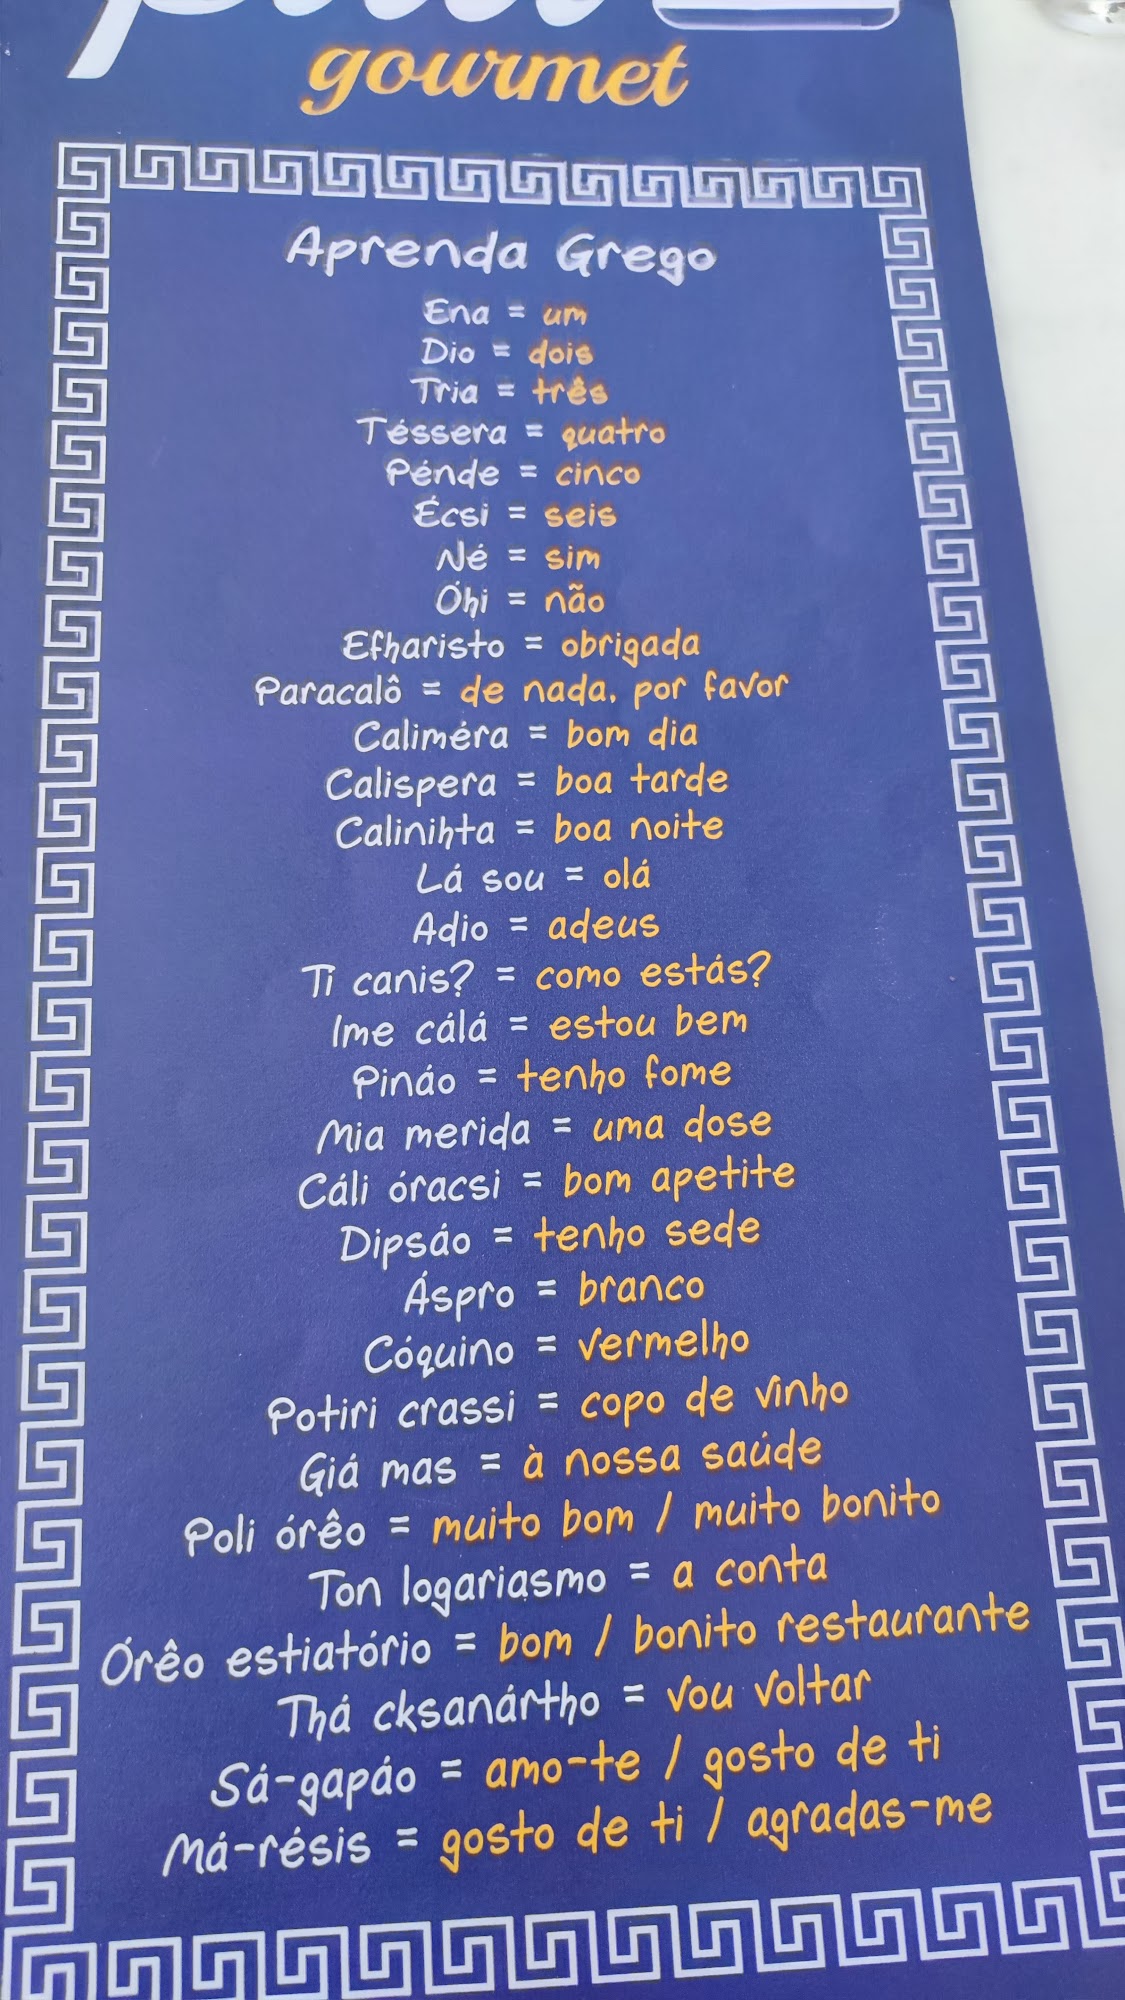 gourmet
Aprenda Grego
Ena = um
Dio = dois
Tria = três
Téssera = quatro
Pénde = cinco
Écsi = seis
Né = sim
Óhi = não
Efharisto = obrigada
Paracalô = de nada, por favor
Caliméra = bom dia
Calispera = boa tarde
Calinihta = boa noite
Lá sou = olá
Adio = adeus
Ti canis? = como estás?
Ime cálá = estou bem
Pináo = tenho fome
Mia merida = uma dose
Cáli óracsi = bom apetite
Dipsáo = tenho sede
Áspro = branco
Cóquino = vermelho
Potiri crassi = copo de vinho
Giá mas = à nossa saúde
Poli órêo = muito bom / muito bonito
Ton logariasmo = a conta
Órêo estiatório = bom / bonito restaurante
Thá cksanártho = vou voltar
Sá-gapáo = amo-te / gosto de ti
Má-résis = gosto de ti / agradas-me